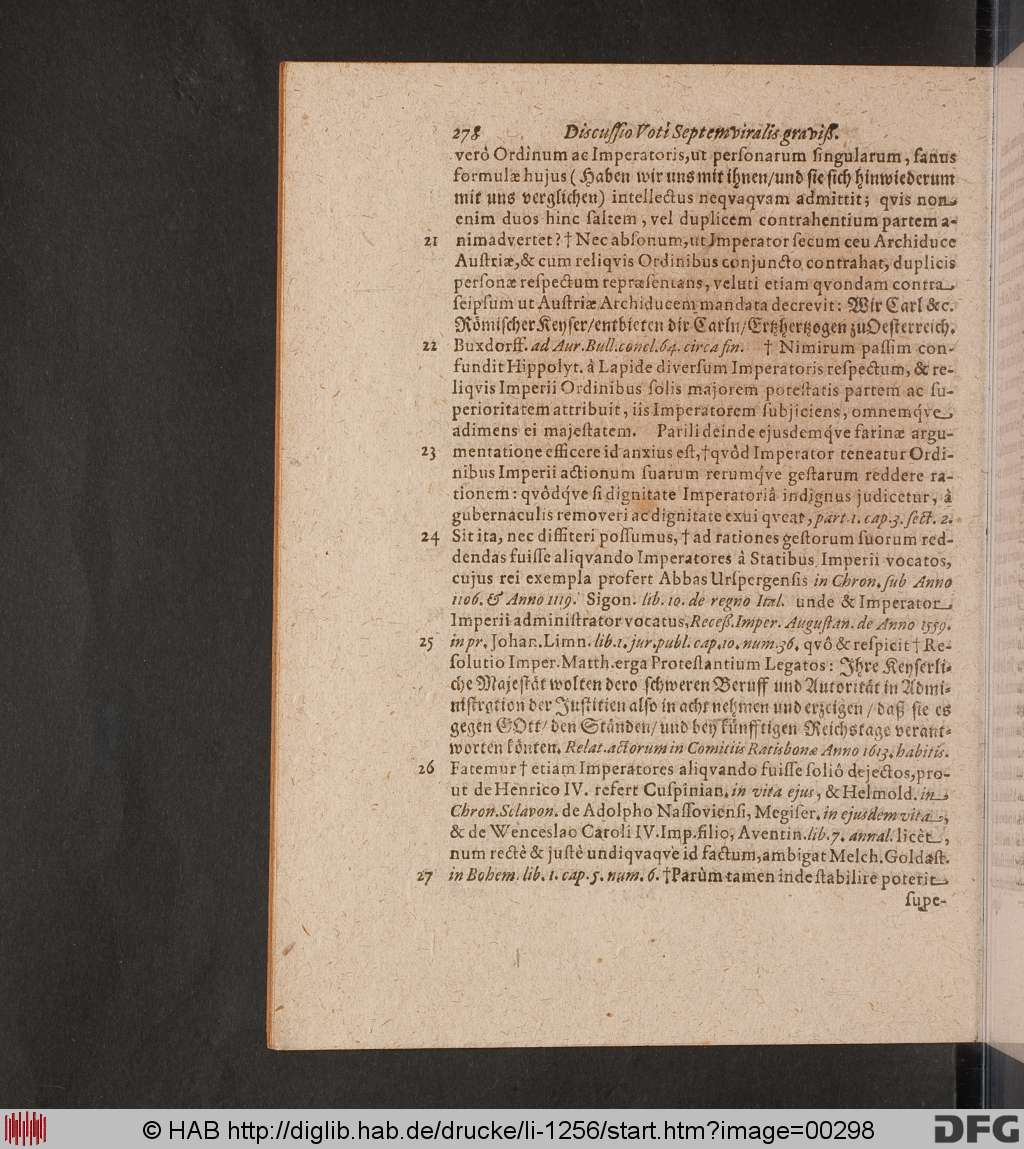 278 Discussio Voti Septemviralis graviss.
verò Ordinum ac Imperatoris, ut personarum singularum, sanus
formulæ hujus (Haben wir uns mit ihnen/ und sie sich hinwiederum
mit uns verglichen) intellectus neqvaqvam admittit; qvis non
enim duos hinc saltem, vel duplicem contrahentium partem a-
21 nimadvertet? † Nec absonum, ut Imperator secum ceu Archiduce
Austriæ, & cum reliqvis Ordinibus conjuncto contrahat, duplicis
personæ respectum repræsentans, veluti etiam qvondam contra
seipsum ut Austriæ Archiducem mandata decrevit: Wir Carl &c.
Römischer Keyser/ entbieten dir Carln/ Ertzhertzogen zu Oesterreich.
22 Buxdorff. ad Aur. Bull. concl. 64. circa fin. † Nimirum passim con-
fundit Hippolyt. à Lapide diversum Imperatoris respectum, & re-
liqvis Imperii Ordinibus solis majorem potestatis partem ac su-
perioritatem attribuit, iis Imperatorem subjiciens, omnemqve
adimens ei majestatem. Parili deinde ejusdemqve farinæ argu-
23 mentatione efficere id anxius est, † qvòd Imperator teneatur Ordi-
nibus Imperii actionum suarum rerumqve gestarum reddere ra-
tionem: qvòdqve si dignitate Imperatoriâ indignus judicetur, à
gubernaculis removeri ac dignitate exui qveat, part. 1. cap. 3. sect. 2.
24 Sit ita, nec diffiteri possumus, † ad rationes gestorum suorum red-
dendas fuisse aliqvando Imperatores à Statibus Imperii vocatos,
cujus rei exempla profert Abbas Urspergensis in Chron. sub Anno
1106. & Anno 1119. Sigon. lib. 10. de regno Ital. unde & Imperator
Imperii administrator vocatus, Receß. Imper. Augustan. de Anno 1559.
25 in pr. Johan. Limn. lib. 1. jur. publ. cap. 10. num. 36. qvô & respicit † Re-
solutio Imper. Matth. erga Protestantium Legatos: Ihre Keyserli-
che Majestät wolten dero schweren Beruff und Autorität in Admi-
nistration der Justitien also in acht nehmen und erzeigen/ daß sie es
gegen GOtt/ den Ständen/ und bey künfftigen Reichstage verant-
worten könten. Relat. actorum in Comitiis Ratisbonæ Anno 1613. habitis.
26 Fatemur † etiam Imperatores aliqvando fuisse soliô dejectos, pro-
ut de Henrico IV. refert Cuspinian. in vita ejus, & Helmold. in
Chron. Sclavon. de Adolpho Nassoviensi, Megiser. in ejusdem vita,
& de Wenceslao Caroli IV. Imp. filio, Aventin. lib. 7. annal. licèt,
num rectè & justè undiqvaqve id factum, ambigat Melch. Goldast.
27 in Bohem. lib. 1. cap. 5. num. 6. † Parùm tamen inde stabilire poterit
supe-
© HAB http://diglib.hab.de/drucke/li-1256/start.htm?image=00298
DFG